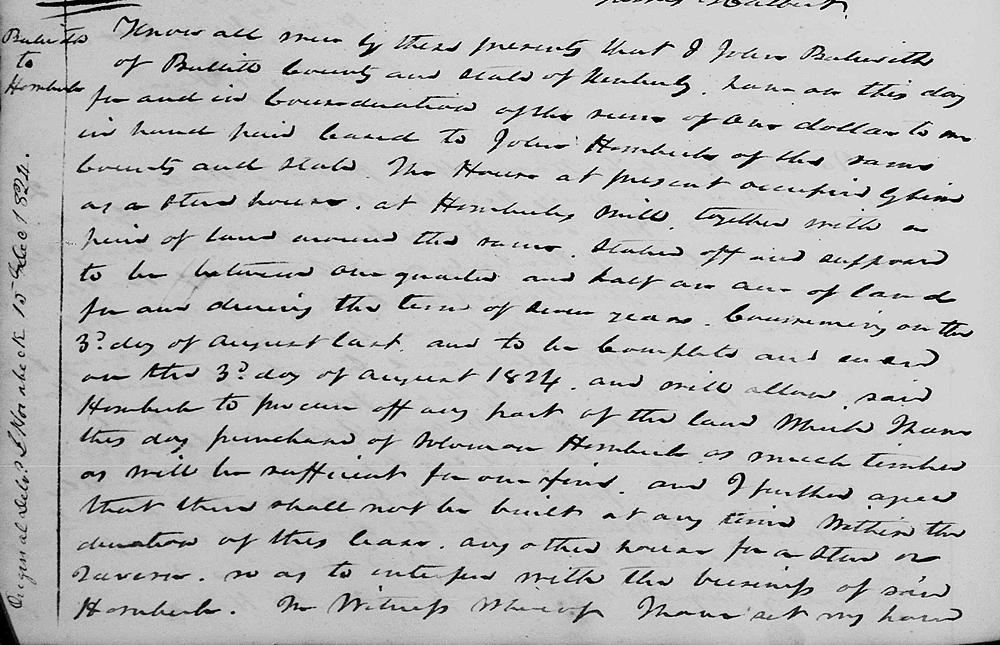 Know all men by these presents that I John Beckwith
of Bullitt County and State of Kentucky. have on this day
for and in Consideration of the sum of one dollar to me
in hand paid leased to John Hornbeck of the same
County and State. The House at present occupied by him
as a Store house. at Hornbecks Mill, together with a
peice of land around the same, staked off and supposed
to be between one quarter and half an acre of land
for and during the term of seven years. Commencing on the
3d. day of August last. and to be Complete and ended
on the 3d. day of August 1824. and will allow said
Hornbeck to procure off any part of the land which I have
this day purchased of Solomon Hornbeck as much timber
as will be sufficient for one fire. and I further agree
that there shall not be built at any time within the
duration of this lease. any other house for a Store or
Tavern. so as to interfere with the business of said
Hornbeck. In Witness Whereof I have set my hand
to
Hornbeck
Original Delv.d J Hornbeck 15th Dec 1824.